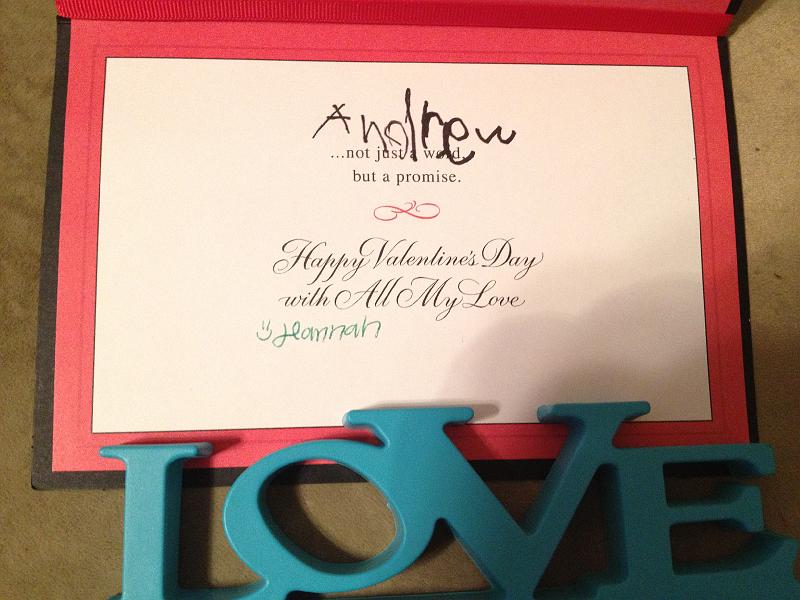 Andrew
...not just a word,
but a promise.
Happy Valentine's Day
with All My Love
Hannah
LOVE